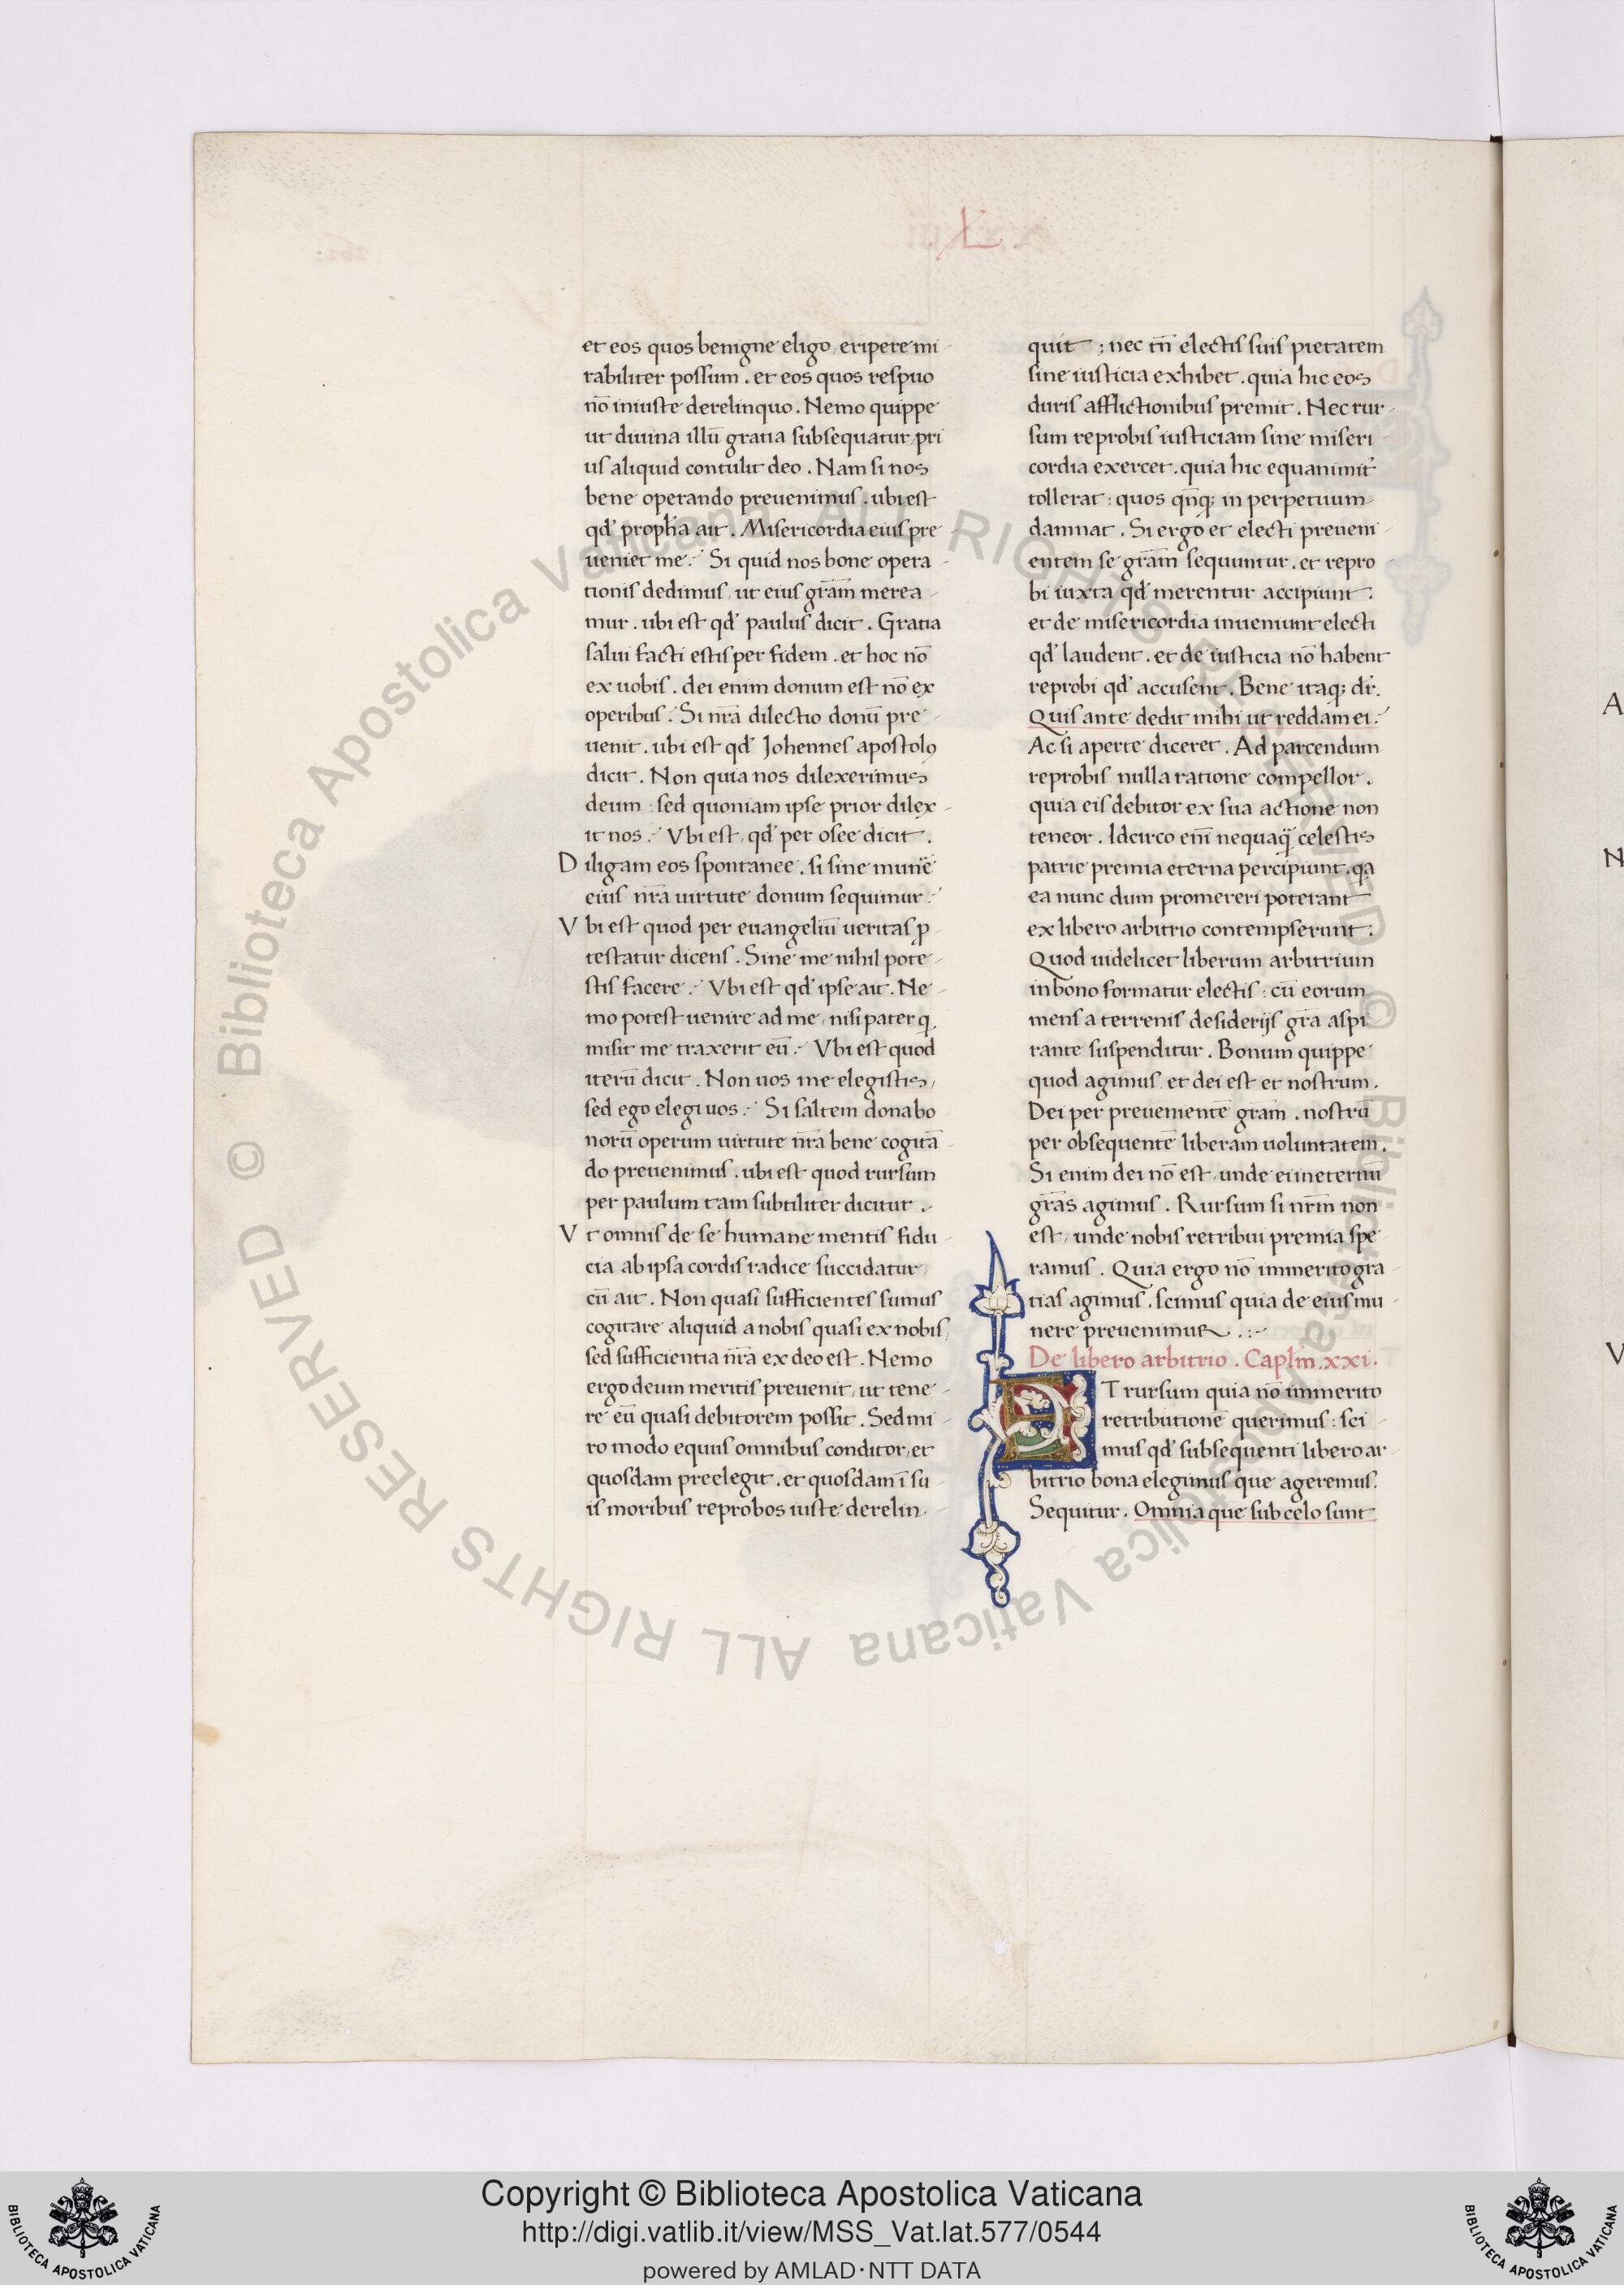 .L.
et eos quos benigne eligo, eripere mi-
rabiliter possum. et eos quos respuo
nō iniuste derelinquo. Nemo quippe
ut diuina illū gratia subsequatur, pri
us aliquid contulit deo. Nam si nos
bene operando preuenimus. ubi est
qd' propħa ait. Misericordia eius pre
ueniet me. Si quid nos bone opera-
tionis dedimus, ut eius grām merea-
mur. ubi est qd' paulus dicit. Gratia
salui facti estis per fidem. et hoc nō
ex uobis. dei enim donum est nō ex
operibus. Si nrā dilectio donū pre-
uenit. ubi est qd' Johennes apostolꝯ
dicit. Non quia nos dilexerimus
deum: sed quoniam ipse prior dilex-
it nos. Vbi est, qd' per osee dicit.
Diligam eos spontanee. si sine munē
eius nrā uirtute donum sequimur.
Vbi est quod per euangeliū ueritas ꝓ-
testatur dicens. Sine me nihil pote-
stis facere. Vbi est qd' ipse ait. Ne-
mo potest uenire ad me, nisi pater q
misit me traxerit eū. Vbi est quod
iterū dicit. Non uos me elegistis,
sed ego elegi uos. Si saltem dona bo
norū operum uirtute nrā bene cogitā-
do preuenimus. ubi est quod rursum
per paulum tam subtiliter dicitur.
Vt omnis de se humane mentis fidu-
cia ab ipsa cordis radice succidatur,
cū ait. Non quasi sufficientes sumus
cogitare aliquid a nobis quasi ex nobis,
sed sufficientia nrā ex deo est. Nemo
ergo deum meritis preuenit, ut tene-
re eū quasi debitorem possit. Sed mi-
ro modo equus omnibus conditor, et
quosdam preelegit. et quosdam ī su-
is moribus reprobos iuste derelin-
quit; nec tn̄ electis suis pietatem
sine iusticia exhibet. quia hic eos
duris afflictionibus premit. Nec rur-
sum reprobis iusticiam sine miseri-
cordia exercet. quia hic equanimit̄
tollerat: quos qn̄qꝫ in perpetuum
damnat. Si ergo et electi preueni-
entem se grām sequuntur. et repro-
bi iuxta qd' merentur accipiunt.
et de misericordia inueniunt electi
qd' laudent. et de iusticia nō habent
reprobi qd' accusent. Bene itaqꝫ dr̄.
Quis ante dedit mihi ut reddam ei.
Ac si aperte diceret. Ad parcendum
reprobis nulla ratione compellor.
quia eis debitor ex sua actione non
teneor. Idcirco eni͞ nequaq̄ celestis
patrie premia eterna percipiunt. qa
ea nunc dum promereri poterant
ex libero arbitrio contempserunt.
Quod uidelicet liberum arbitrium
in bono formatur electis: cū eorum
mens a terrenis desiderijs grā aspi
rante suspenditur. Bonum quippe
quod agimus, et dei est et nostrum.
Dei per preuenientē grām. nostrū
per obsequentē liberam uoluntatem.
Si enim dei nō est, unde ei in eternū
grās agimus. Rursum si nrm̄ non
est, unde nobis retribui premia spe-
ramus. Quia ergo nō immerito gra-
tias agimus. scimus quia de eius mu-
nere preuenimur.:-
De libero arbitrio. Caplm̄.xxi.
ET rursum quia nō immerito
retributionē querimus: sci-
mus qd' subsequenti libero ar-
bitrio bona elegimus que ageremus.
Sequitur. Omnia que sub celo sunt
A
N
V
© Biblioteca Apostolica Vaticana ALL RIGHTS RESERVED © Biblioteca Apostolica Vaticana ALL RIGHTS RESERVED
Copyright © Biblioteca Apostolica Vaticana
http://digi.vatlib.it/view/MSS_Vat.lat.577/0544
powered by AMLAD·NTT DATA
BIBLIOTECA APOSTOLICA VATICANA
BIBLIOTECA APOSTOLICA VATICANA